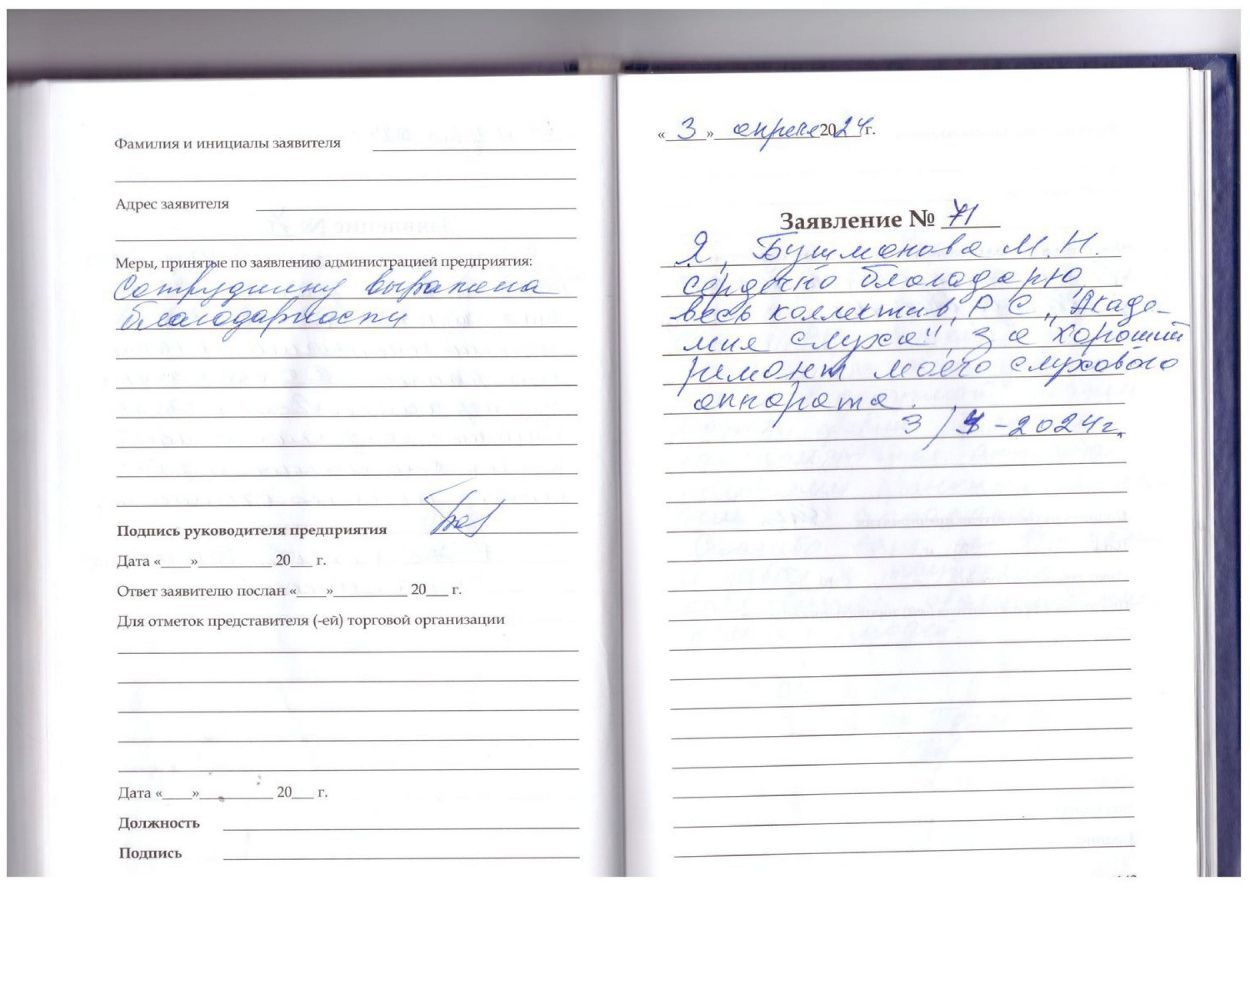 Фамилия и инициалы заявителя
Адрес заявителя
Меры, принятые по заявлению администрацией предприятия:
Сотруднику выражена
благодарности
Подпись руководителя предприятия
Дата «____»__________ 20___ г.
Ответ заявителю послан «____»__________ 20___ г.
Для отметок представителя (-ей) торговой организации
Дата «____»__________ 20___ г.
Должность
Подпись
«3» апреля 2024г.
Заявление № 71
Я, Бушманова М. Н.
сердечно благодарю
весь коллектив, РС „Акаде-
мия слуха", за хороший
ремонт моего слухового
аппарата.
3/4-2024г.